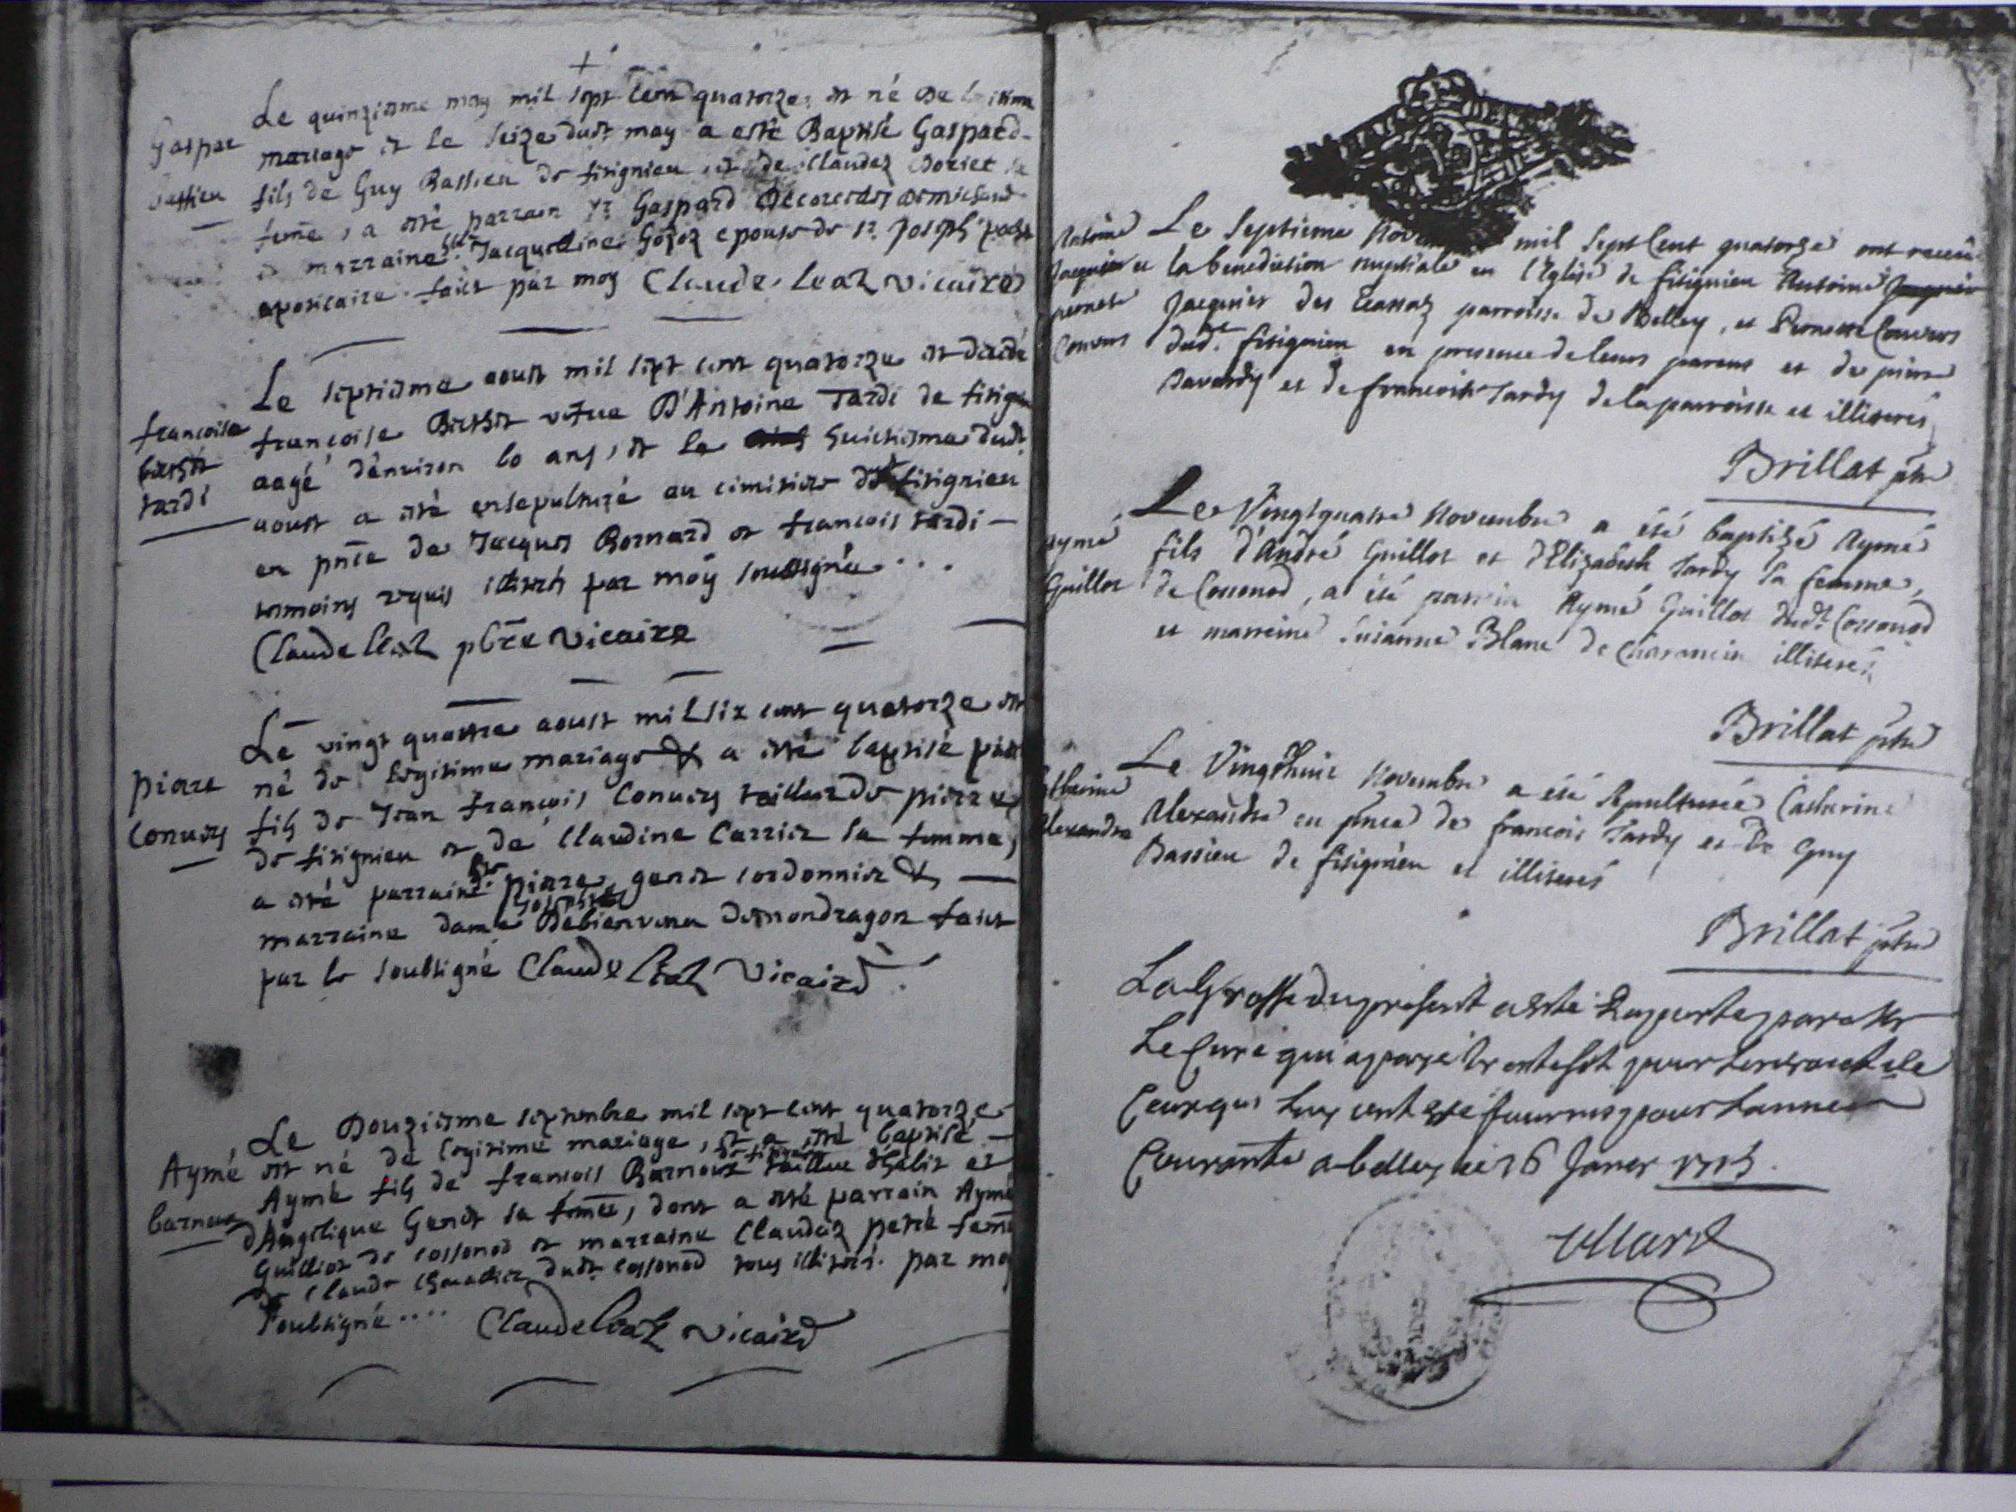 Le quinziesme may mil sept cent quatorze, est né de
Gaspar
mariage et le seize dudt may a esté Baptisé Gaspard
Bassieu
fils de Guy Bassieu de fitignieu et de Claudaz
feme, a esté parrain sr Gaspard
marraine Jacqueline epouse de sr Joseph
apoticaire faict par moy Claude Leaz vicaire
Le septiesme aoust mil sept cent quatorze est decedé
françoise
tardi
françoise vefue D'Antoine Tardi de fitign
aagé d'environ 60 ans, et le huictiesme dudt
aoust a esté ensepulturé au cimitiere de fitignieu
en pnce de Jacques Bornard et francois tardi
tesmoins requis illiterés par moy soubsigné ....
Claude Leaz pbre vicaire
Le vingt quattre aoust mil six cent quatorze est
né de legitime mariage & a esté baptisé pier
piere
Conuers
fils de Jean françois Conuers tailleur de pierre
de fitignieu et de Claudine Carrier sa femme,
a esté parrain piere genet cordonnier &
marraine dame Debienvenu de mondragon faict
par le soubsigné Claude Leaz Vicaire
Le Douziesme septembre mil sept cent quatorze
Aymé
est né de legitime mariage, et a esté baptisé
barnoux
Aymé fils de francois Barnoux de fitignieu tailleur d'habit et
d'Angelique Genet sa feme, dont a esté parrain Aymé
Guilliot de cossonod et marraine Claudaz petit feme
de Claude Chevallier dudt cossonod tous illiterés. par moy
soubsigné .... Claude Leaz vicaire
Antoine
Jacquier et
pernete
Convers
Le septieme Novembre mil sept cent quatorze ont receu
la benediction nuptiale en l'Eglise de fitignieu Antoine Jacquier
Jacquier des parroisse de Belley, et Pernette Convers
dudt. fitignieu en presence de leurs parens et de pierre
Davardy et de francois Tardy de la parroisse et illiterés
Brillat ptre
Le Vingtquatre Novembre a été baptisé Aymé
Aymé
Guillot
fils d'André Guillot et d'Elizabeth Tardy sa femme,
de Cossonod, a été parrein Aymé Guillot dudt. Cossonod
et marreine Susanne Blanc de Charancin illiterés
Brillat ptre
Le Vingthuit Novembre a été sepulturée Catherine
Catherine
Alexandre
Alexandre en pnce de francois Tardy et de Guy
Bassieu de fitignieu et illiterés
Brillat ptre
La Grosse du present a esté Raportée par Mr
Le Curé qui a payé trente sols pour le
Ceux qui luy ont esté fournis pour Lannée
Courante a belley ce 26 Janer 1715.